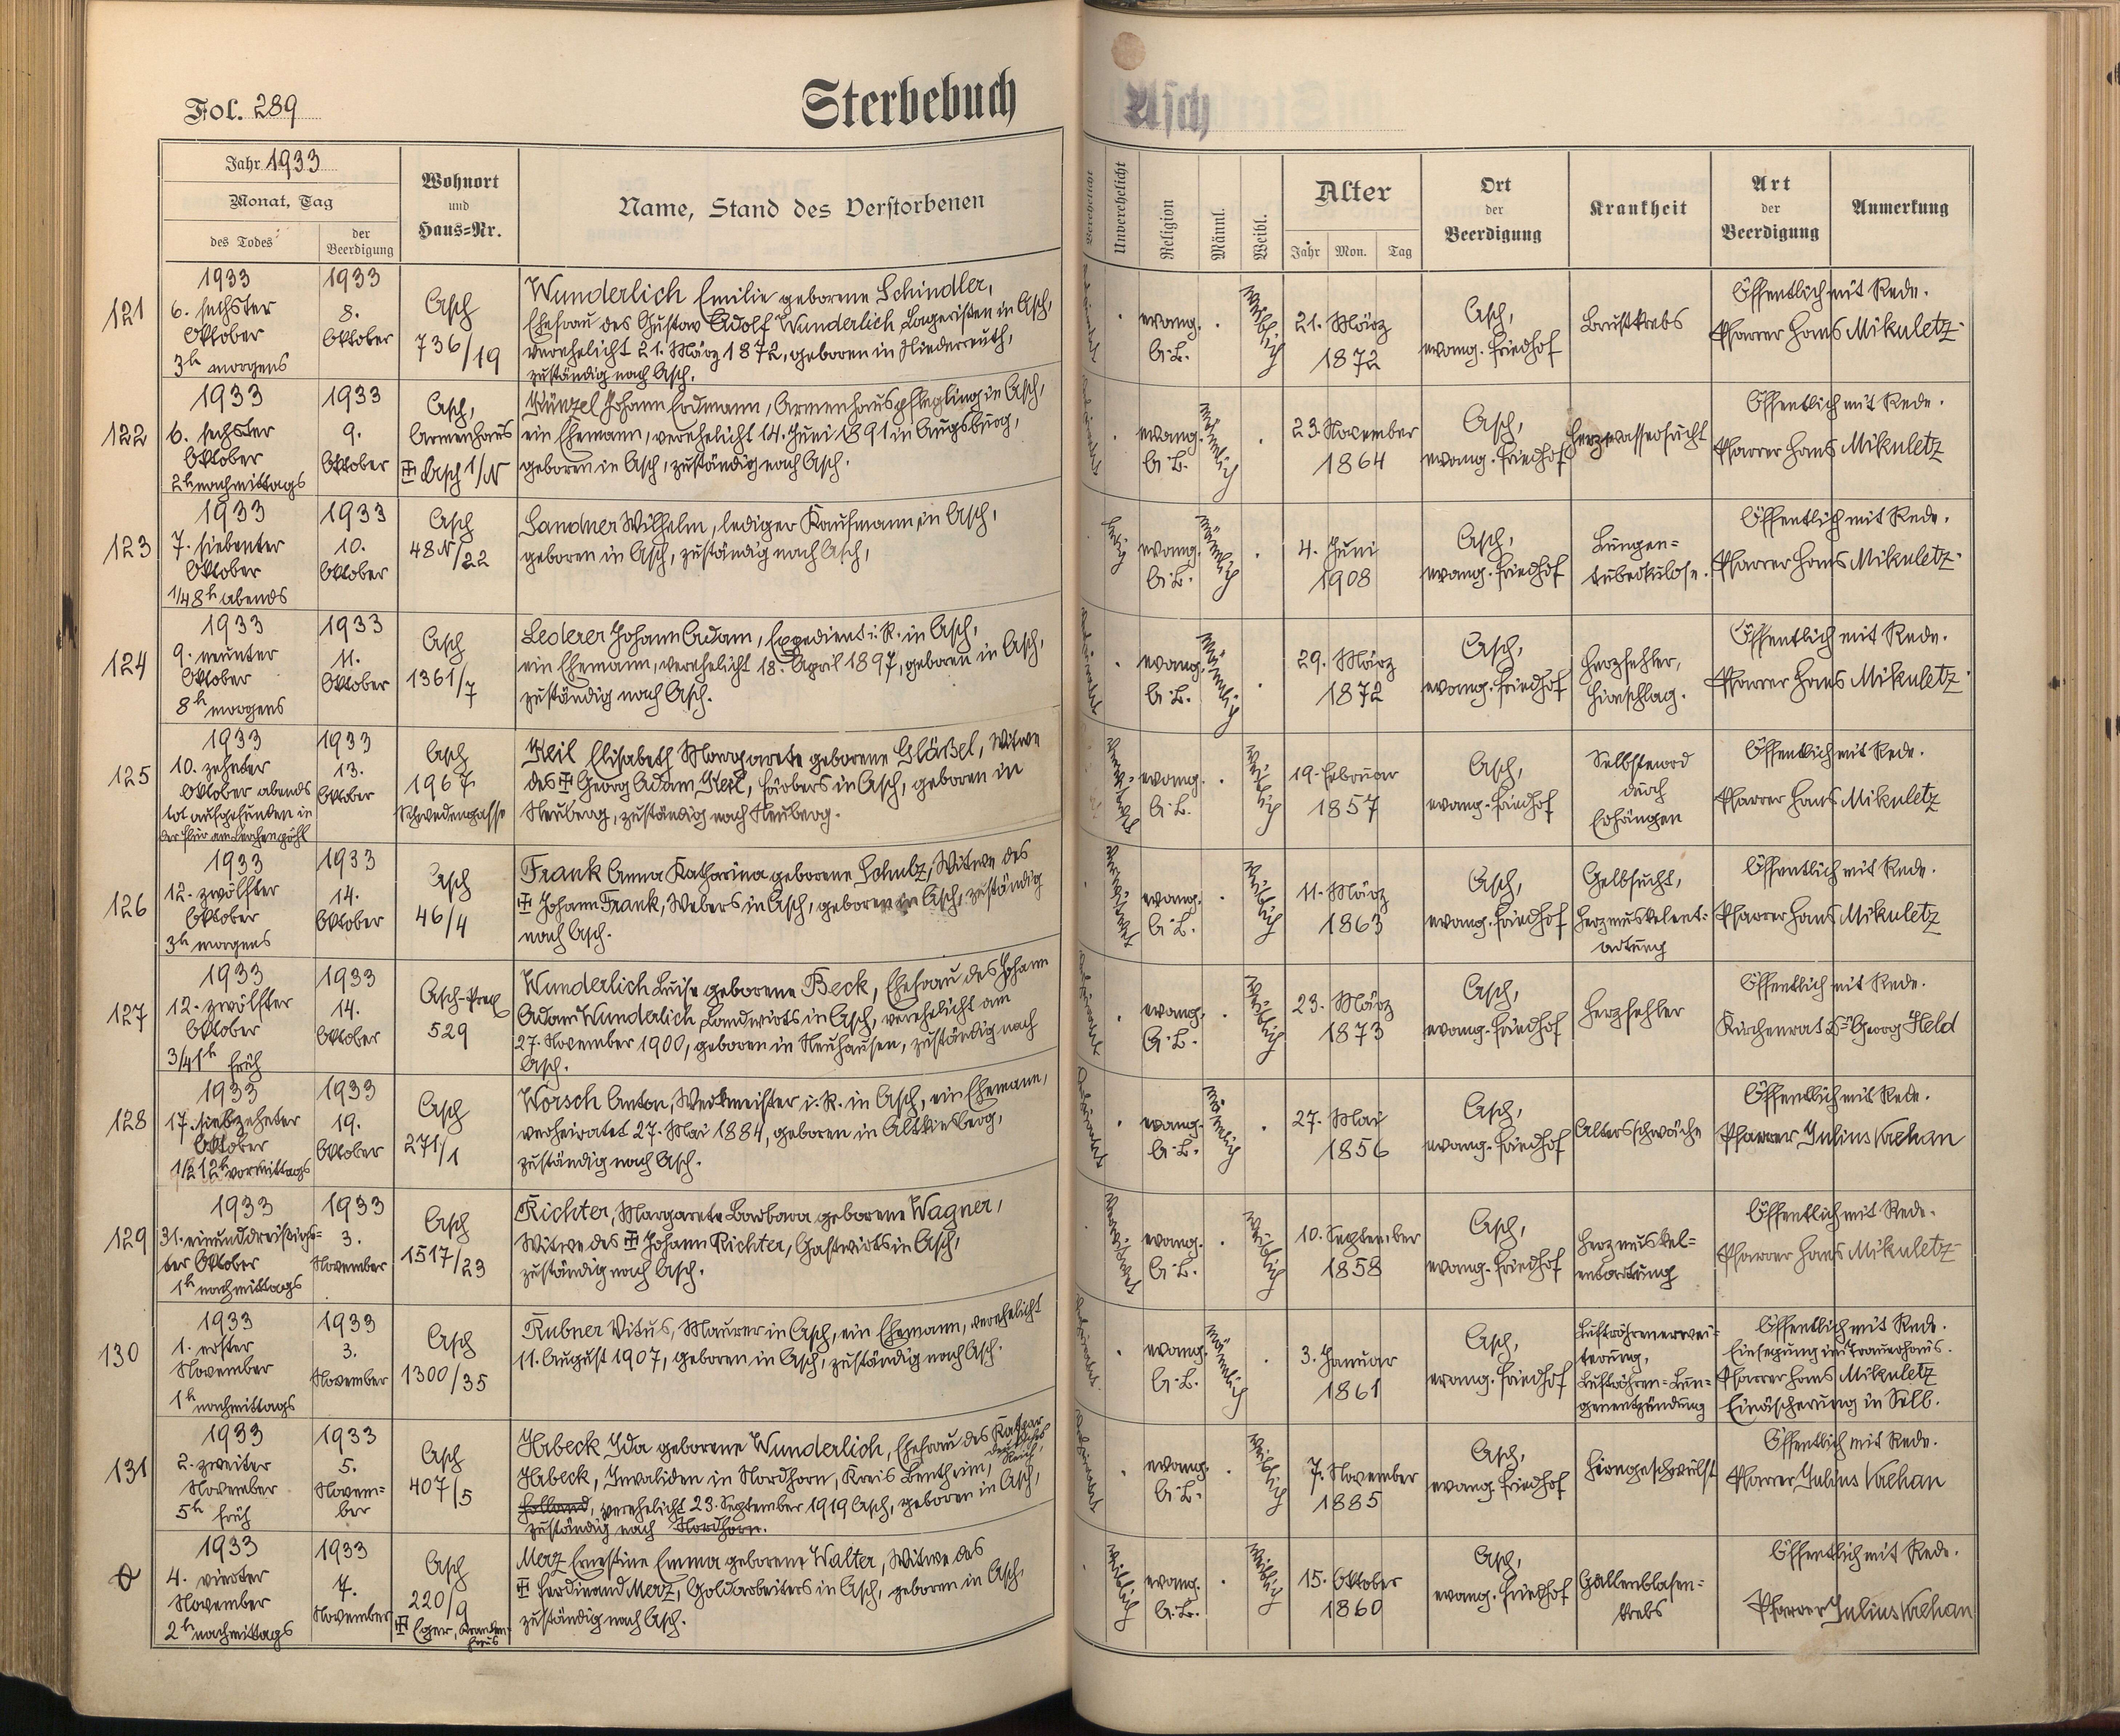 Fol. 289
Sterbebuch
Asch
Jahr 1933
Monat, Tag
des Todes
der
Beerdigung
Wohnort
und
Haus=Nr.
Name, Stand des Verstorbenen
Verehelicht
Unverehelicht
Religion
Männl.
Weibl.
Alter
Jahr
Mon.
Tag
Ort
der
Beerdigung
Krankheit
Art
der
Beerdigung
Anmerkung
121
1933
6. sechster
Oktober
3h morgens
1933
8.
Oktober
Asch
736/19
Wunderlich Emilie geborene Schindler,
Ehefrau des Gustav Adolf Wunderlich Lageristen in Asch,
verehelicht 21. März 1872, geboren in Niederreuth,
zuständig nach Asch.
evang.
A. B.
weiblich
21. März
1872
Asch,
evang. Friedhof
Brustkrebs
Öffentlich mit Rede.
Pfarrer Hans Mikuletz
122
1933
6. sechster
Oktober
2h nachmittags
1933
9.
Oktober
Asch,
Armenhaus
Asch 1/N
Künzel Johann Erdmann, Armenhauspflegling in Asch,
ein Ehemann, verehelicht 14. Juni 1891 in Augsburg,
geboren in Asch, zuständig nach Asch.
evang.
A. B.
männlich
23. November
1864
Asch,
evang. Friedhof
Herzwassersucht
Öffentlich mit Rede.
Pfarrer Hans Mikuletz
123
1933
7. siebenter
Oktober
1/4 8h abends
1933
10.
Oktober
Asch
48N/22
Sandner Wilhelm, lediger Kaufmann in Asch,
geboren in Asch, zuständig nach Asch,
ledig
evang.
A. B.
männlich
4. Juni
1908
Asch,
evang. Friedhof
Lungen=
tuberkulose.
Öffentlich mit Rede.
Pfarrer Hans Mikuletz
124
1933
9. neunter
Oktober
8h morgens
1933
11.
Oktober
Asch
1361/7
Lederer Johann Adam, Expedient i. R. in Asch,
ein Ehemann, verehelicht 18. April 1897, geboren in Asch,
zuständig nach Asch.
evang.
A. B.
männlich
29. März
1872
Asch,
evang. Friedhof
Herzfehler,
Hirnschlag.
Öffentlich mit Rede.
Pfarrer Hans Mikuletz
125
1933
10. zehnter
Oktober abends
tot aufgefunden in
der Flur am Lerchenpöhl
1933
13.
Oktober
Asch
1967
Schwedengasse
Keil Elisabeth Margarete geborene Gläßel, Witwe
des Georg Adam Keil, Färbers in Asch, geboren in
Neuberg, zuständig nach Neuberg.
evang.
A. B.
weiblich
19. Februar
1857
Asch,
evang. Friedhof
Selbstmord
durch
Erhängen
Öffentlich mit Rede.
Pfarrer Hans Mikuletz
126
1933
12. zwölfter
Oktober
3h morgens
1933
14.
Oktober
Asch
46/4
Frank Anna Katharina geborene Schulz, Witwe des
Johann Frank, Webers in Asch, geboren in Asch, zuständig
nach Asch.
verwitwet
evang.
A. B.
weiblich
11. März
1863
Asch,
evang. Friedhof
Gelbsucht,
Herzmuskelent=
artung
Öffentlich mit Rede.
Pfarrer Hans Mikuletz
127
1933
12. zwölfter
Oktober
3/4 1h früh
1933
14.
Oktober
Asch-Prex
529
Wunderlich Luise geborene Beck, Ehefrau des Johann
Adam Wunderlich Landwirts in Asch, verehelicht am
27. November 1900, geboren in Neuhausen, zuständig nach
Asch.
evang.
A. B.
weiblich
23. März
1873
Asch,
evang. Friedhof
Herzfehler
Öffentlich mit Rede.
Kirchenrat Dr. Georg Held
128
1933
17. siebzehnter
Oktober
1/2 12h vormittags
1933
19.
Oktober
Asch
271/1
Worsch Anton, Werkmeister i. R. in Asch, ein Ehemann,
verheiratet 27. Mai 1884, geboren in Altkinsberg,
zuständig nach Asch.
evang.
A. B.
männlich
27. Mai
1856
Asch,
evang. Friedhof
Altersschwäche
Öffentlich mit Rede.
Pfarrer Julius Krehan
129
1933
31. einunddreißigs=
ter Oktober
1h nachmittags
1933
3.
November
Asch
1517/23
Richter, Margarete Barbara geborene Wagner,
Witwe des Johann Richter, Gastwirts in Asch,
zuständig nach Asch.
verwitwet
evang.
A. B.
weiblich
10. September
1858
Asch,
evang. Friedhof
Herzmuskel=
entartung
Öffentlich mit Rede.
Pfarrer Hans Mikuletz
130
1933
1. erster
November
1h nachmittags
1933
3.
November
Asch
1300/35
Rubner Vitus, Maurer in Asch, ein Ehemann, verehelicht
11. August 1907, geboren in Asch, zuständig nach Asch.
evang.
A. B.
männlich
3. Januar
1861
Asch,
evang. Friedhof
Luftröhrenerwei=
terung,
Luftröhren=Lun=
genentzündung
Öffentlich mit Rede.
Einsegnung im Trauerhaus.
Pfarrer Hans Mikuletz
Einäscherung in Selb.
131
1933
2. zweiter
November
5h früh
1933
5.
Novem=
ber
Asch
407/5
Harbeck Ida geborene Wunderlich, Ehefrau des Kaspar
Harbeck, Invaliden in Nordhorn, Kreis Bentheim, deutsches Reich,
Holland, verehelicht 23. September 1919 Asch, geboren in Asch,
zuständig nach Nordhorn.
evang.
A. B.
weiblich
7. November
1885
Asch,
evang. Friedhof
Hirngeschwulst
Öffentlich mit Rede.
Pfarrer Julius Krehan
1933
4. vierter
November
2h nachmittags
1933
7.
November
Asch
220/9
Eger, Kranken=
haus
Merz Ernestine Emma geborene Walter, Witwe des
Ferdinand Merz, Goldarbeiters in Asch, geboren in Asch,
zuständig nach Asch.
evang.
A. B.
weiblich
15. Oktober
1860
Asch,
evang. Friedhof
Gallenblasen=
krebs
Öffentlich mit Rede.
Pfarrer Julius Krehan